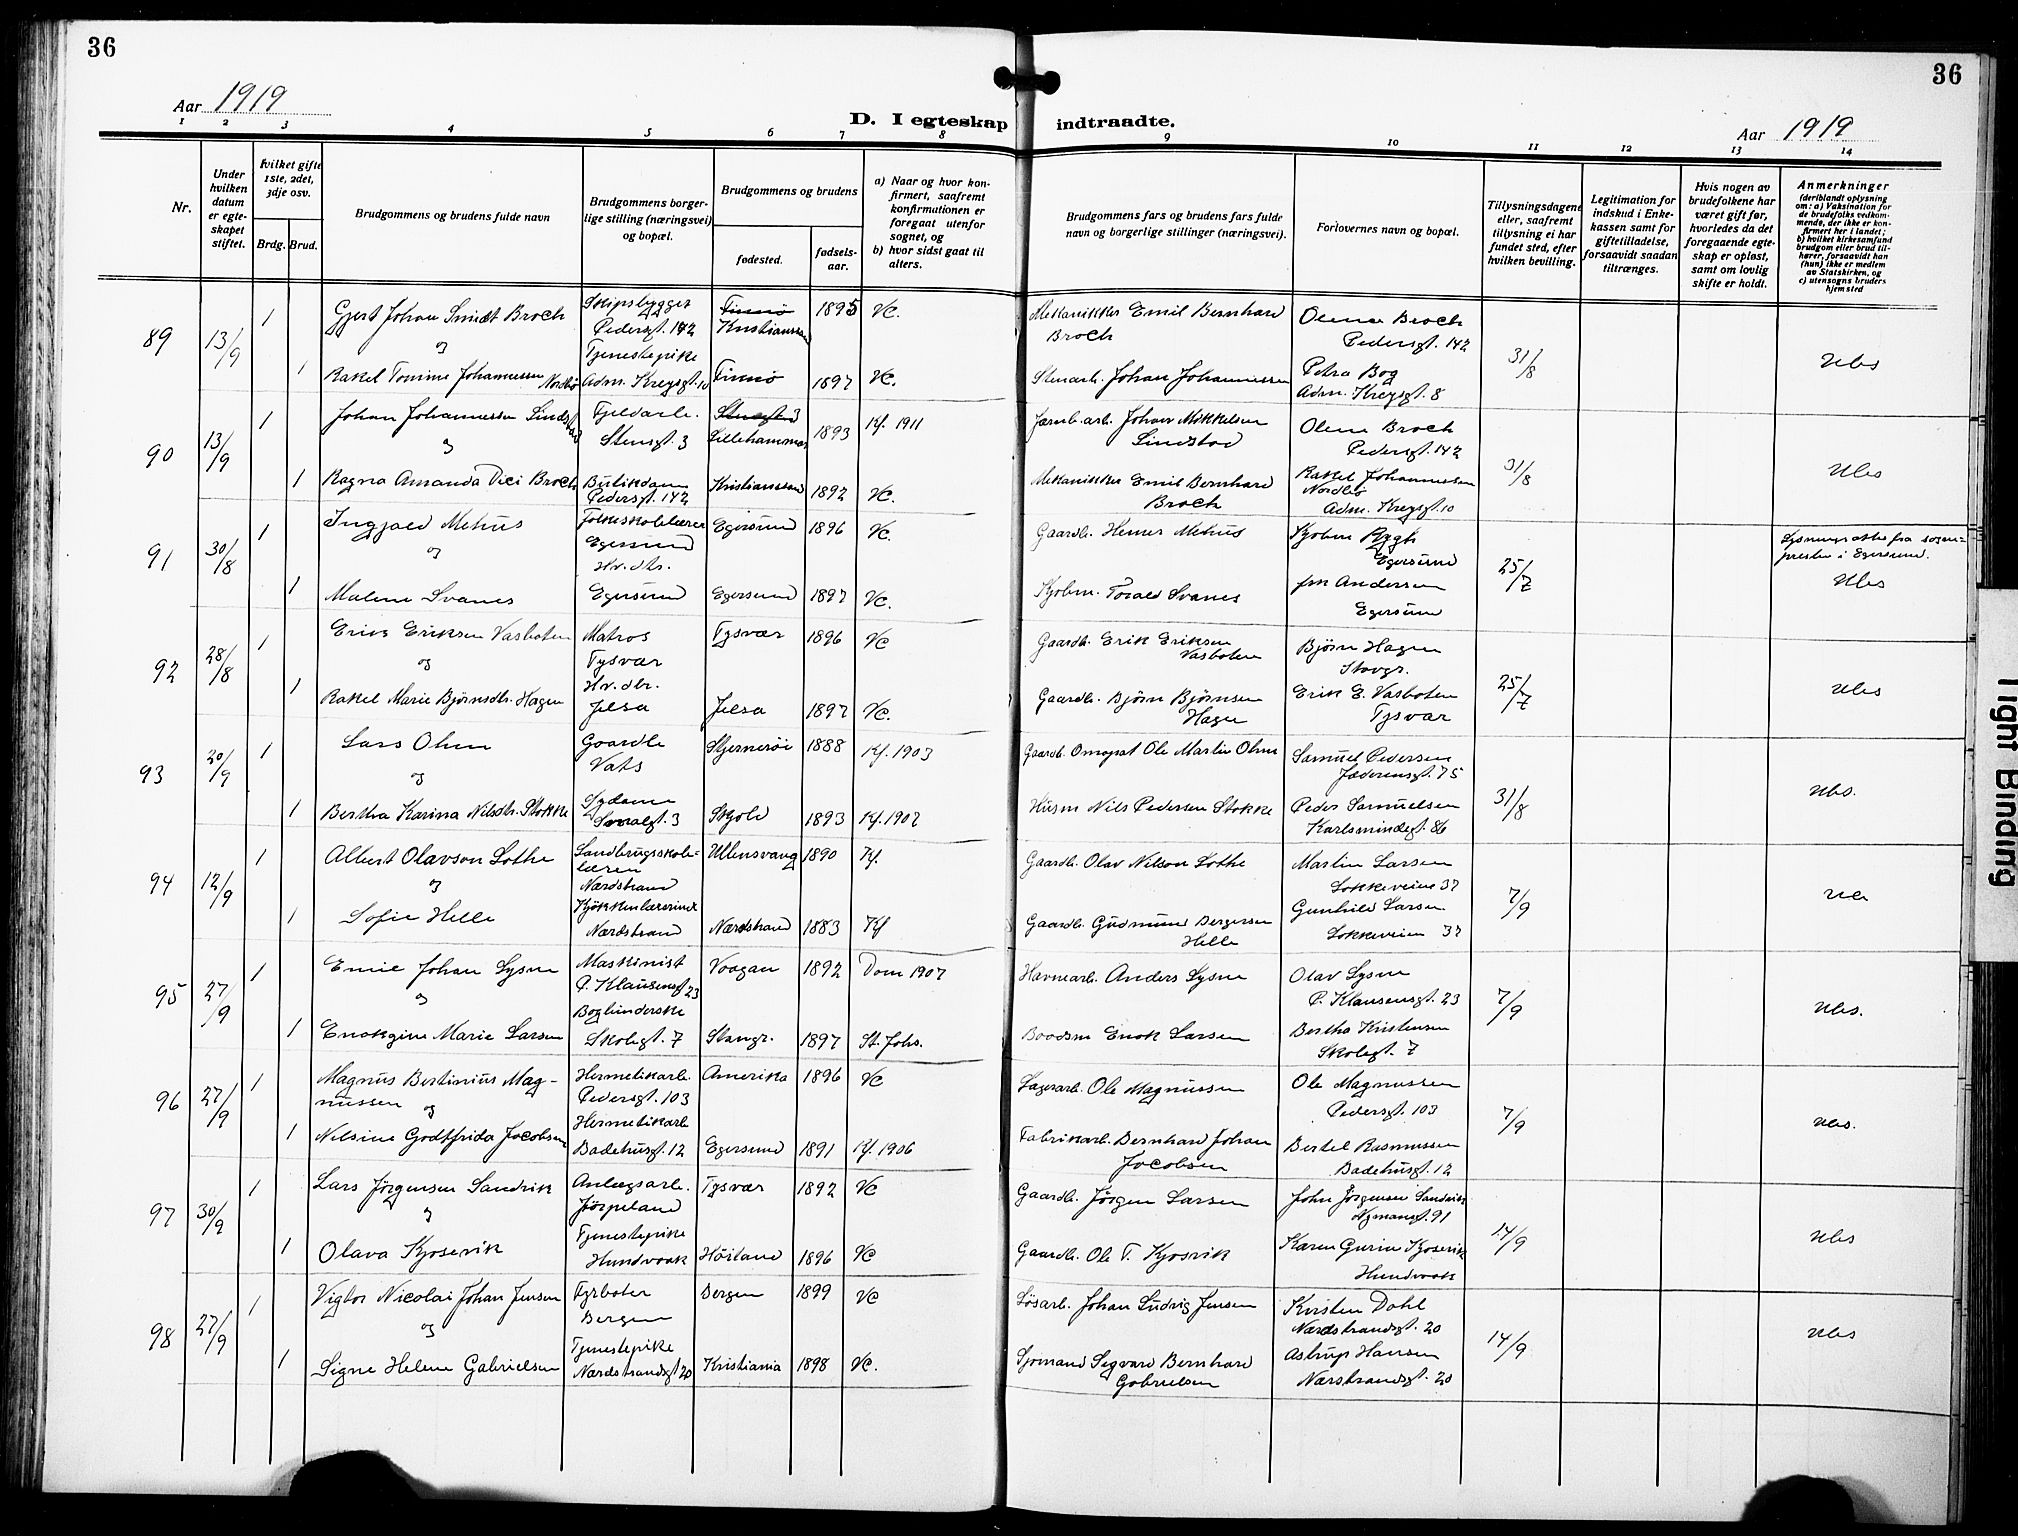 36
36
Aar 1919
D. I egteskap indtraadte.
Aar 1919
1 2 3 4 5 6 7 8 9 10 11 12 13 14
Nr.
Under hvilken datum er egteskapet stiftet.
Hvilket gifte 1ste, 2det, 3dje osv.
Brdg. Brud.
Brudgommens og brudens fulde navn
Brudgommens borgerlige stilling (næringsvei) og bopæl.
Brudgommens og brudens
fødested.
fødselsaar.
a) Naar og hvor konfirmert, saafremt konfirmationen er foregaat utenfor sognet, og
b) hvor sidst gaat til alters.
Brudgommens fars og brudens fars fulde navn og borgerlige stillinger (næringsvei).
Forlovernes navn og bopæl.
Tillysningsdagene eller, saafremt tillysning ei har fundet sted, efter hvilken bevilling.
Legitimation for indskud i Enkekassen samt for giftetilladelse, forsaavidt saadan tiltrænges.
Hvis nogen av brudefolkene har været gift før, hvorledes da det foregaaende egteskap er opløst, samt om lovlig skifte er holdt.
Anmerkninger (deriblandt oplysning om: a) Vaksination for de brudefolks vedkommende, der ikke er konfirmert her i landet; b) hvilket kirkesamfund brudgom eller brud tilhører, forsaavidt han (hun) ikke er medlem av Statskirken, og c) utensogns bruders hjemsted
89 13/9 1 Gjert Johan Smidt Broch Skipsbygger Pedersgt. 142 Kristianssand 1895 Vc. Mekanikker Emil Bernhard Broch Olena Broch Pedersgt. 142 31/8 Ubs
og
1 Rakel Tomine Johannessen Nordbø Tjenestepike Adm. Kreysgt. 10 Finnø 1897 Vc. Stenarb. Johan Johannessen Petra Bog Adm. Kreysgt. 8
90 13/9 1 Johan Johannessen Lindstad Fjeldarb. Stensgt. 3 Lillehammer 1893 Kf. 1911 Jærnb. arb. Johan Mikkelsen Lindstad Olena Broch Pedersgt. 142 31/8 Ubs
og
1 Ragna Amanda Broch Butikdam Pedersgt. 142 Kristianssand 1892 Vc. Mekanikker Emil Bernhard Broch Rakel Johannessen Nordbø Adm. Kreysgt. 10
91 30/8 1 Ingjald Mehus Folkeskolelærer Egersund Egersund 1896 Vc. Gaardb. Hemer Mehus Kjøbm. Rygh Egersund 25/7 Lysningsattest fra sogneprest i Egersund. Ubs
og
1 Malene Svanes Hv. dtr. Egersund Egersund 1897 Vc. Kjøbm. Torald Svanes frn Andersen Egersund
92 28/8 1 Erik Eriksen Vasboten Matros Tysvær Tysvær 1896 Vc Gaardb. Erik Eriksen Vasboten Bjørn Hagen Stavgr. 25/7 Ubs
og
1 Rakel Marie Bjørnsdtr. Hagen Hv. dtr. Jelsa Jelsa 1897 Vc. Gaardb. Bjørn Bjørnsen Hagen Erik E. Vasboten Tysvær
93 20/9 1 Lars Ohm Gaardb Vats Stjernerøi 1888 Kf. 1903 Gaardb. Ole Martin Ohm Samuel Pedersen Jæderensgt. 75 31/8 Ubs.
og
1 Bertha Karina Nilsdtr. Stokke Sydame 3 Skjold 1893 Kf. 1907 Husm Nils Pedersen Stokke Peder Samuelsen Karlsmindegt. 86
94 12/9 1 Albert Olavson Lothe Landbrugsskolelærer Nærdstrand Ullensvang 1890 Kf. Gaardb. Olav Nilson Lothe Martin Larsen Løkkeveien 37 7/9 Ubs
og
1 Sofie Helle Kjøkkenlærerinde Nærdstrand Nærdstrand 1883 Kf Gaardb. Gudmund Bergersen Helle Gunhild Larsen Løkkeveien 37
95 27/9 1 Emil Johan Lysne Maskinist P. Klausensgt 23 Vaagan 1892 Dom 1907 Havnearb. Anders Lysne Olav Lysne P. Klausensgt. 23 7/9 Ubs.
og
1 Enokgine Marie Larsen Bogbinderske Skolegt. 7 Stavgr. 1897 St. Johs. Baadsm Enok Larsen Bertha Kristensen Skolegt. 7
96 27/9 1 Magnus Bertinius Magnussen Hermetikarb. Pedersgt. 103 Amerika 1896 Vc Lagerarb. Ole Magnussen Ole Magnussen Pedersgt. 103 7/9 Ubs.
og
1 Nilsine Godtfrida Jacobsen Hermetikarb Badehusgt. 12 Egersund 1891 Kf. 1906 Fabrikarb. Bernhard Johan Jacobsen Bertel Rasmussen Badehusgt. 12
97 30/9 1 Lars Jørgensen Sandvik Anlægsarb. Jørpeland Tysvær 1892 Vc Gaardb. Jørgen Larsen John Jørgensen Sandvik Nymansgt. 91 14/9 Ubs
og
1 Olava Kjosevik Tjenestepike Hundvaak Høiland 1896 Vc Gaardb. Ole T. Kjosvik Karen Gurine Kjosevik Hundvaak
98 27/9 1 Vigtor Nicolai Johan Jensen Fyrbøter Bergen Bergen 1899 Vc Løsarb. Johan Ludvig Jensen Kirsten Dahl Nærdstrandsgt. 20 14/9 Ubs
og
1 Signe Helene Gabrielsen Tjenestepike Nærdstrandsgt 20 Kristiania 1898 Vc. Sjømand Sigvard Bernhard Gabrielsen Astrup Hansen Nærstrandsgt. 20
Tight Binding